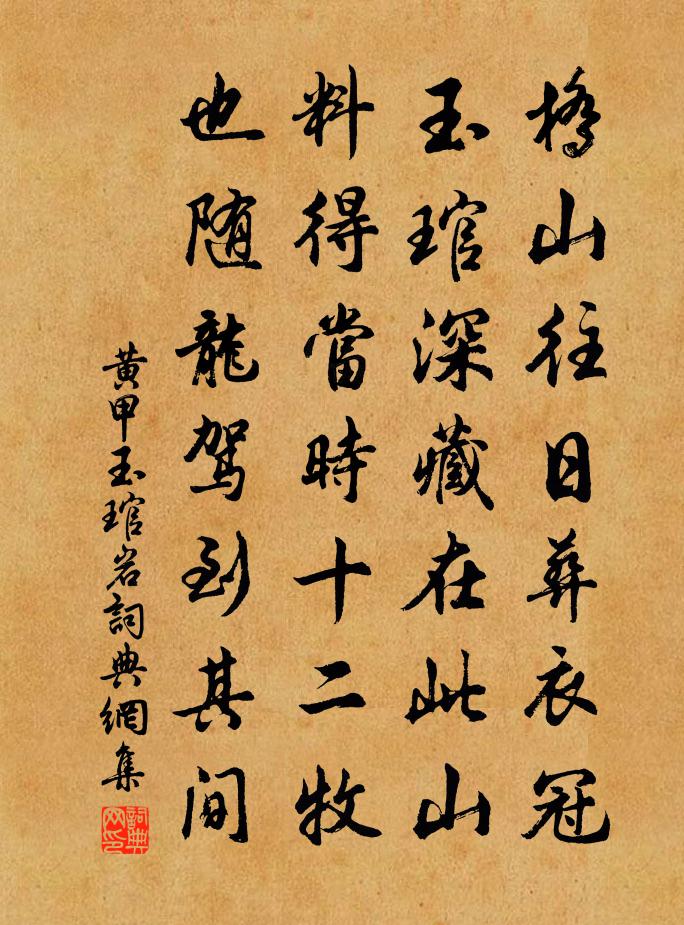 橋山往日葬衣冠
玉琯深藏在此山
料得當時十二牧
也随龍駕到其間
黄甲玉琯岩詞典網集
詞典网印